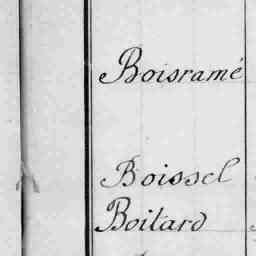 Boisramé
Boissel
Boitard